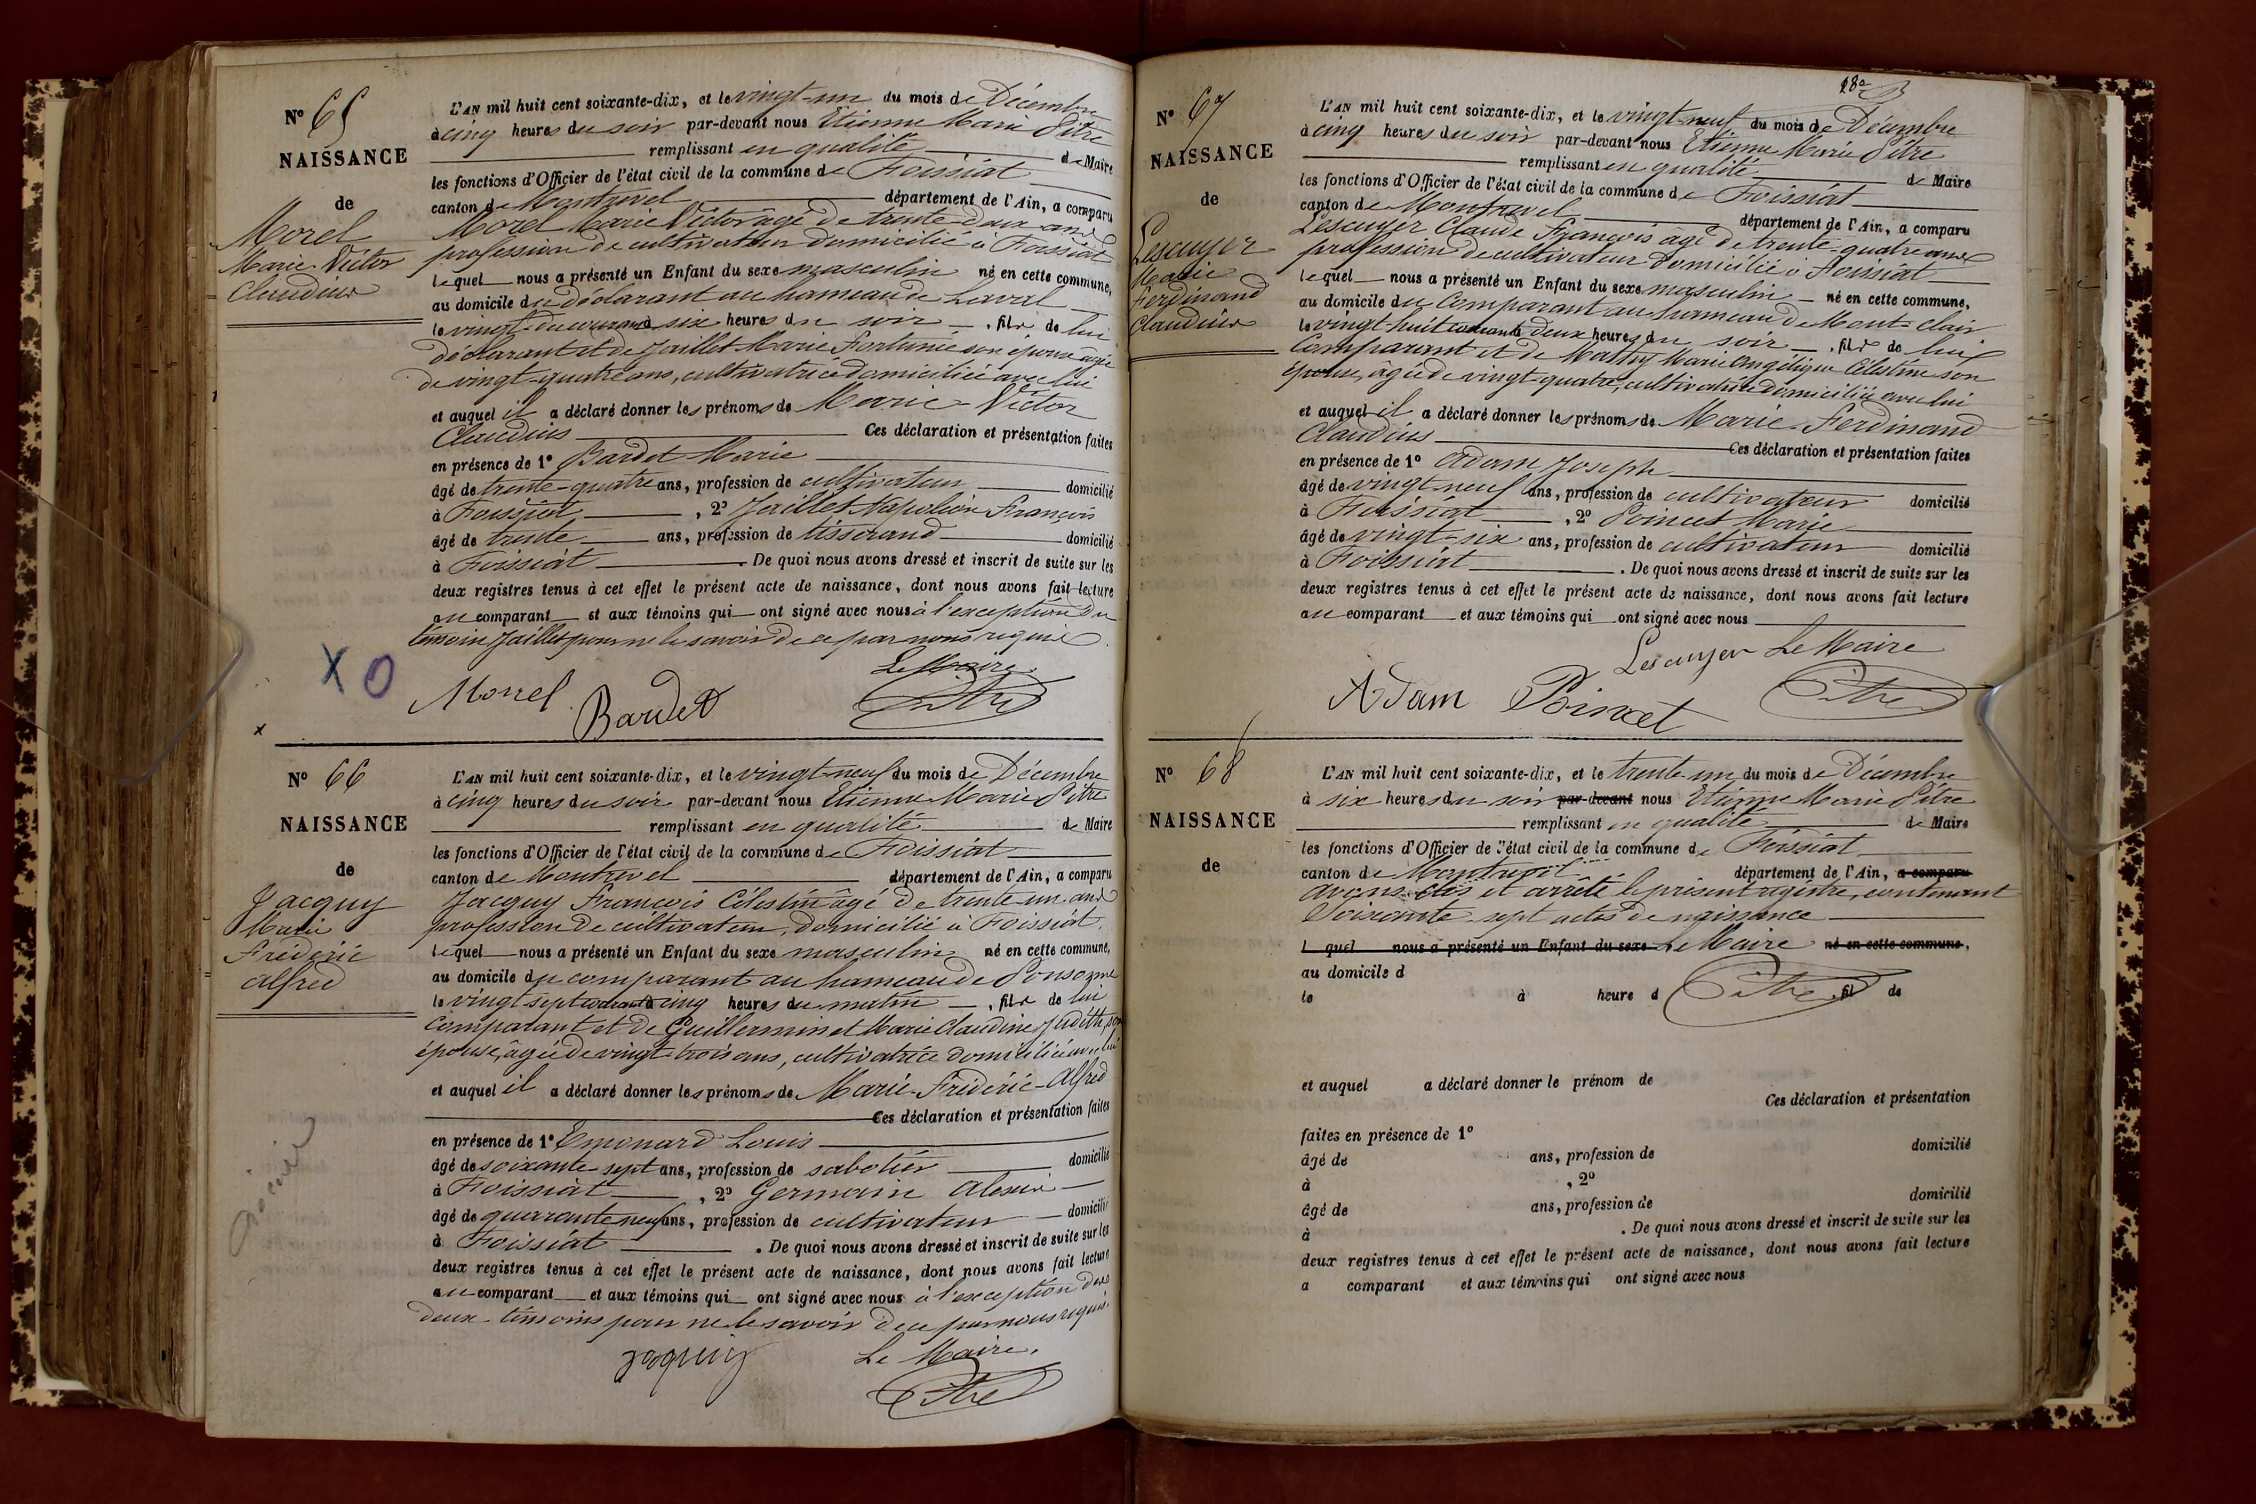 N° 65
NAISSANCE
de
Morel
Marie Victor
Claudius
L'AN mil huit cent soixante-dix, et le vingt-un du mois de Décembre
à cinq heures du soir par-devant nous Etienne Marie Pitre
remplissant en qualité de Maire
les fonctions d'Officier de l'état civil de la commune de Foissiat
canton de Montrevel département de l'Ain, a comparu
Morel Marie Victor âgé de trente-deux ans
profession de cultivateur domicilié à Foissiat
lequel nous a présenté un Enfant du sexe masculin né en cette commune,
au domicile du déclarant au hameau de Laval
le vingt du courant à six heures du soir, fils de lui
déclarant et de Jaillet Marie Fortunée son épouse âgée
de vingt-quatre ans, cultivatrice domiciliée avec lui
et auquel il a déclaré donner les prénoms de Marie-Victor
Claudius Ces déclaration et présentation faites
en présence de 1° Bardet Marie
âgé de trente-quatre ans, profession de cultivateur domicilié
à Foissiat, 2° Jaillet Napoléon François
âgé de trente ans, profession de tisserand domicilié
à Foissiat. De quoi nous avons dressé et inscrit de suite sur les
deux registres tenus à cet effet le présent acte de naissance, dont nous avons fait lecture
au comparant et aux témoins qui ont signé avec nous à l'exception du
témoin Jaillet pour ne le savoir de ce par nous requis.
Le Maire
X O
Morel Bardet Pitre
x
N° 66
NAISSANCE
de
Jacquy
Marie
Frédéric
Alfred
L'AN mil huit cent soixante-dix, et le vingt-neuf du mois de Décembre
à cinq heures du soir par-devant nous Etienne Marie Pitre
remplissant en qualité de Maire
les fonctions d'Officier de l'état civil de la commune de Foissiat
canton de Montrevel département de l'Ain, a comparu
Jacquy François Célestin âgé de trente-un ans
profession de cultivateur, domicilié à Foissiat.
lequel nous a présenté un Enfant du sexe masculin né en cette commune,
au domicile du comparant au hameau de
le vingt sept courant à cinq heures du matin, fils de lui
comparant et de Guillerminet Marie Claudine Judith, son
épouse, âgée de vingt-trois ans, cultivatrice domiciliée avec lui
et auquel il a déclaré donner les prénoms de Marie-Frédéric-Alfred
Ces déclaration et présentation faites
en présence de 1° Emonard Louis
âgé de soixante sept ans, profession de sabotier domicilié
à Foissiat, 2° Germain Alexis
âgé de quarante neuf ans, profession de cultivateur domicilié
à Foissiat. De quoi nous avons dressé et inscrit de suite sur les
deux registres tenus à cet effet le présent acte de naissance, dont nous avons fait lecture
au comparant et aux témoins qui ont signé avec nous à l'exception des
deux témoins pour ne le savoir de ce par nous requis.
Le Maire.
Jaquy Pitre
N° 67
NAISSANCE
de
Lescuyer
Marie
Ferdinand
Claudius
L'AN mil huit cent soixante-dix, et le vingt-neuf du mois de Décembre
à cinq heures du soir par-devant nous Etienne Marie Pitre
remplissant en qualité de Maire
les fonctions d'Officier de l'état civil de la commune de Foissiat
canton de Montrevel département de l'Ain, a comparu
Lescuyer Claude François âgé de trente-quatre ans
profession de cultivateur domicilié à Foissiat
lequel nous a présenté un Enfant du sexe masculin né en cette commune,
au domicile du comparant au hameau de Mont-clair
le vingt-huit courant à deux heures du soir, fils de lui
Comparant et de Mathy Marie Angélique Célestine son
épouse, âgée de vingt-quatre, cultivatrice domiciliée avec lui
et auquel il a déclaré donner les prénoms de Marie-Ferdinand
Claudius Ces déclaration et présentation faites
en présence de 1° Adam Joseph
âgé de vingt-neuf ans, profession de cultivateur domicilié
à Foissiat, 2° Poincet Marie
âgé de vingt-six ans, profession de cultivateur domicilié
à Foissiat. De quoi nous avons dressé et inscrit de suite sur les
deux registres tenus à cet effet le présent acte de naissance, dont nous avons fait lecture
au comparant et aux témoins qui ont signé avec nous
Lescuyer Le Maire
Adam Poincet Pitre
N° 68
NAISSANCE
de
L'AN mil huit cent soixante-dix, et le trente-un du mois de Décembre
à six heures du soir par-devant nous Etienne Marie Pitre
remplissant en qualité de Maire
les fonctions d'Officier de l'état civil de la commune de Foissiat
canton de Montrevel département de l'Ain, a comparu
avons clos et arrêté le présent registre, contenant
soixante sept actes de naissance
l quel nous a présenté un Enfant du sexe Le Maire né en cette commune,
au domicile d
le à heure d Pitre fil de
et auquel a déclaré donner le prénom de
Ces déclaration et présentation
faites en présence de 1° domicilié
âgé de ans, profession de
à , 2°
âgé de ans, profession de domicilié
à . De quoi nous avons dressé et inscrit de suite sur les
deux registres tenus à cet effet le présent acte de naissance, dont nous avons fait lecture
a comparant et aux témoins qui ont signé avec nous